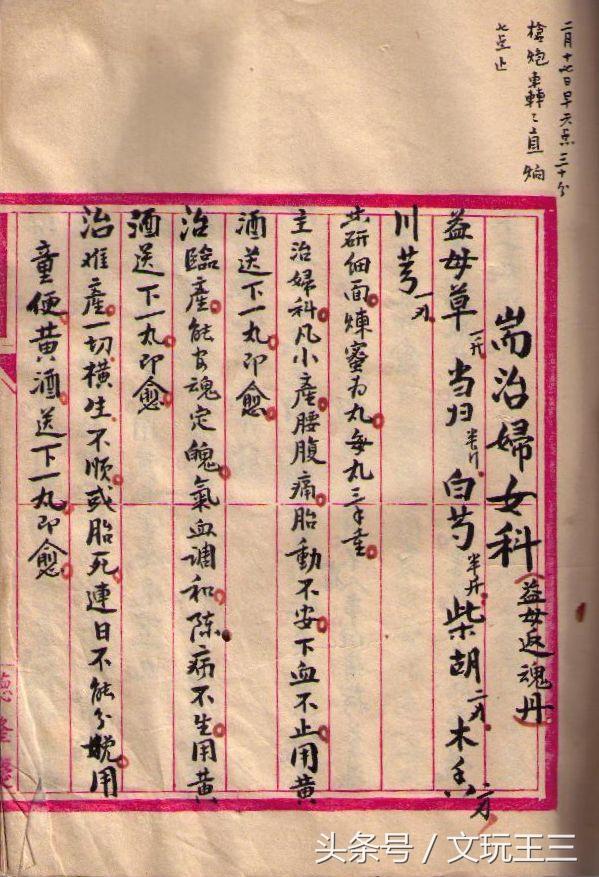 二月十七日早六点三十分
槍炮車轉〻直响
七点止
耑治婦女科（益母返魂丹）
益母草 当归 白芍 半斤 柴胡 二刃 木香
川芎 一刃
共研细面煉蜜为丸每丸三手重
主治婦科凡小產腰腹痛胎動不安下血不止用黄
酒送下一丸即愈
治臨產能安魂定魄氣血调和陈病不生用黄
酒送下一丸即愈
治难產一切横生不顺或胎死連日不能分娩用
童便黄酒送下一丸即愈
德隆
头条号 / 文玩王三